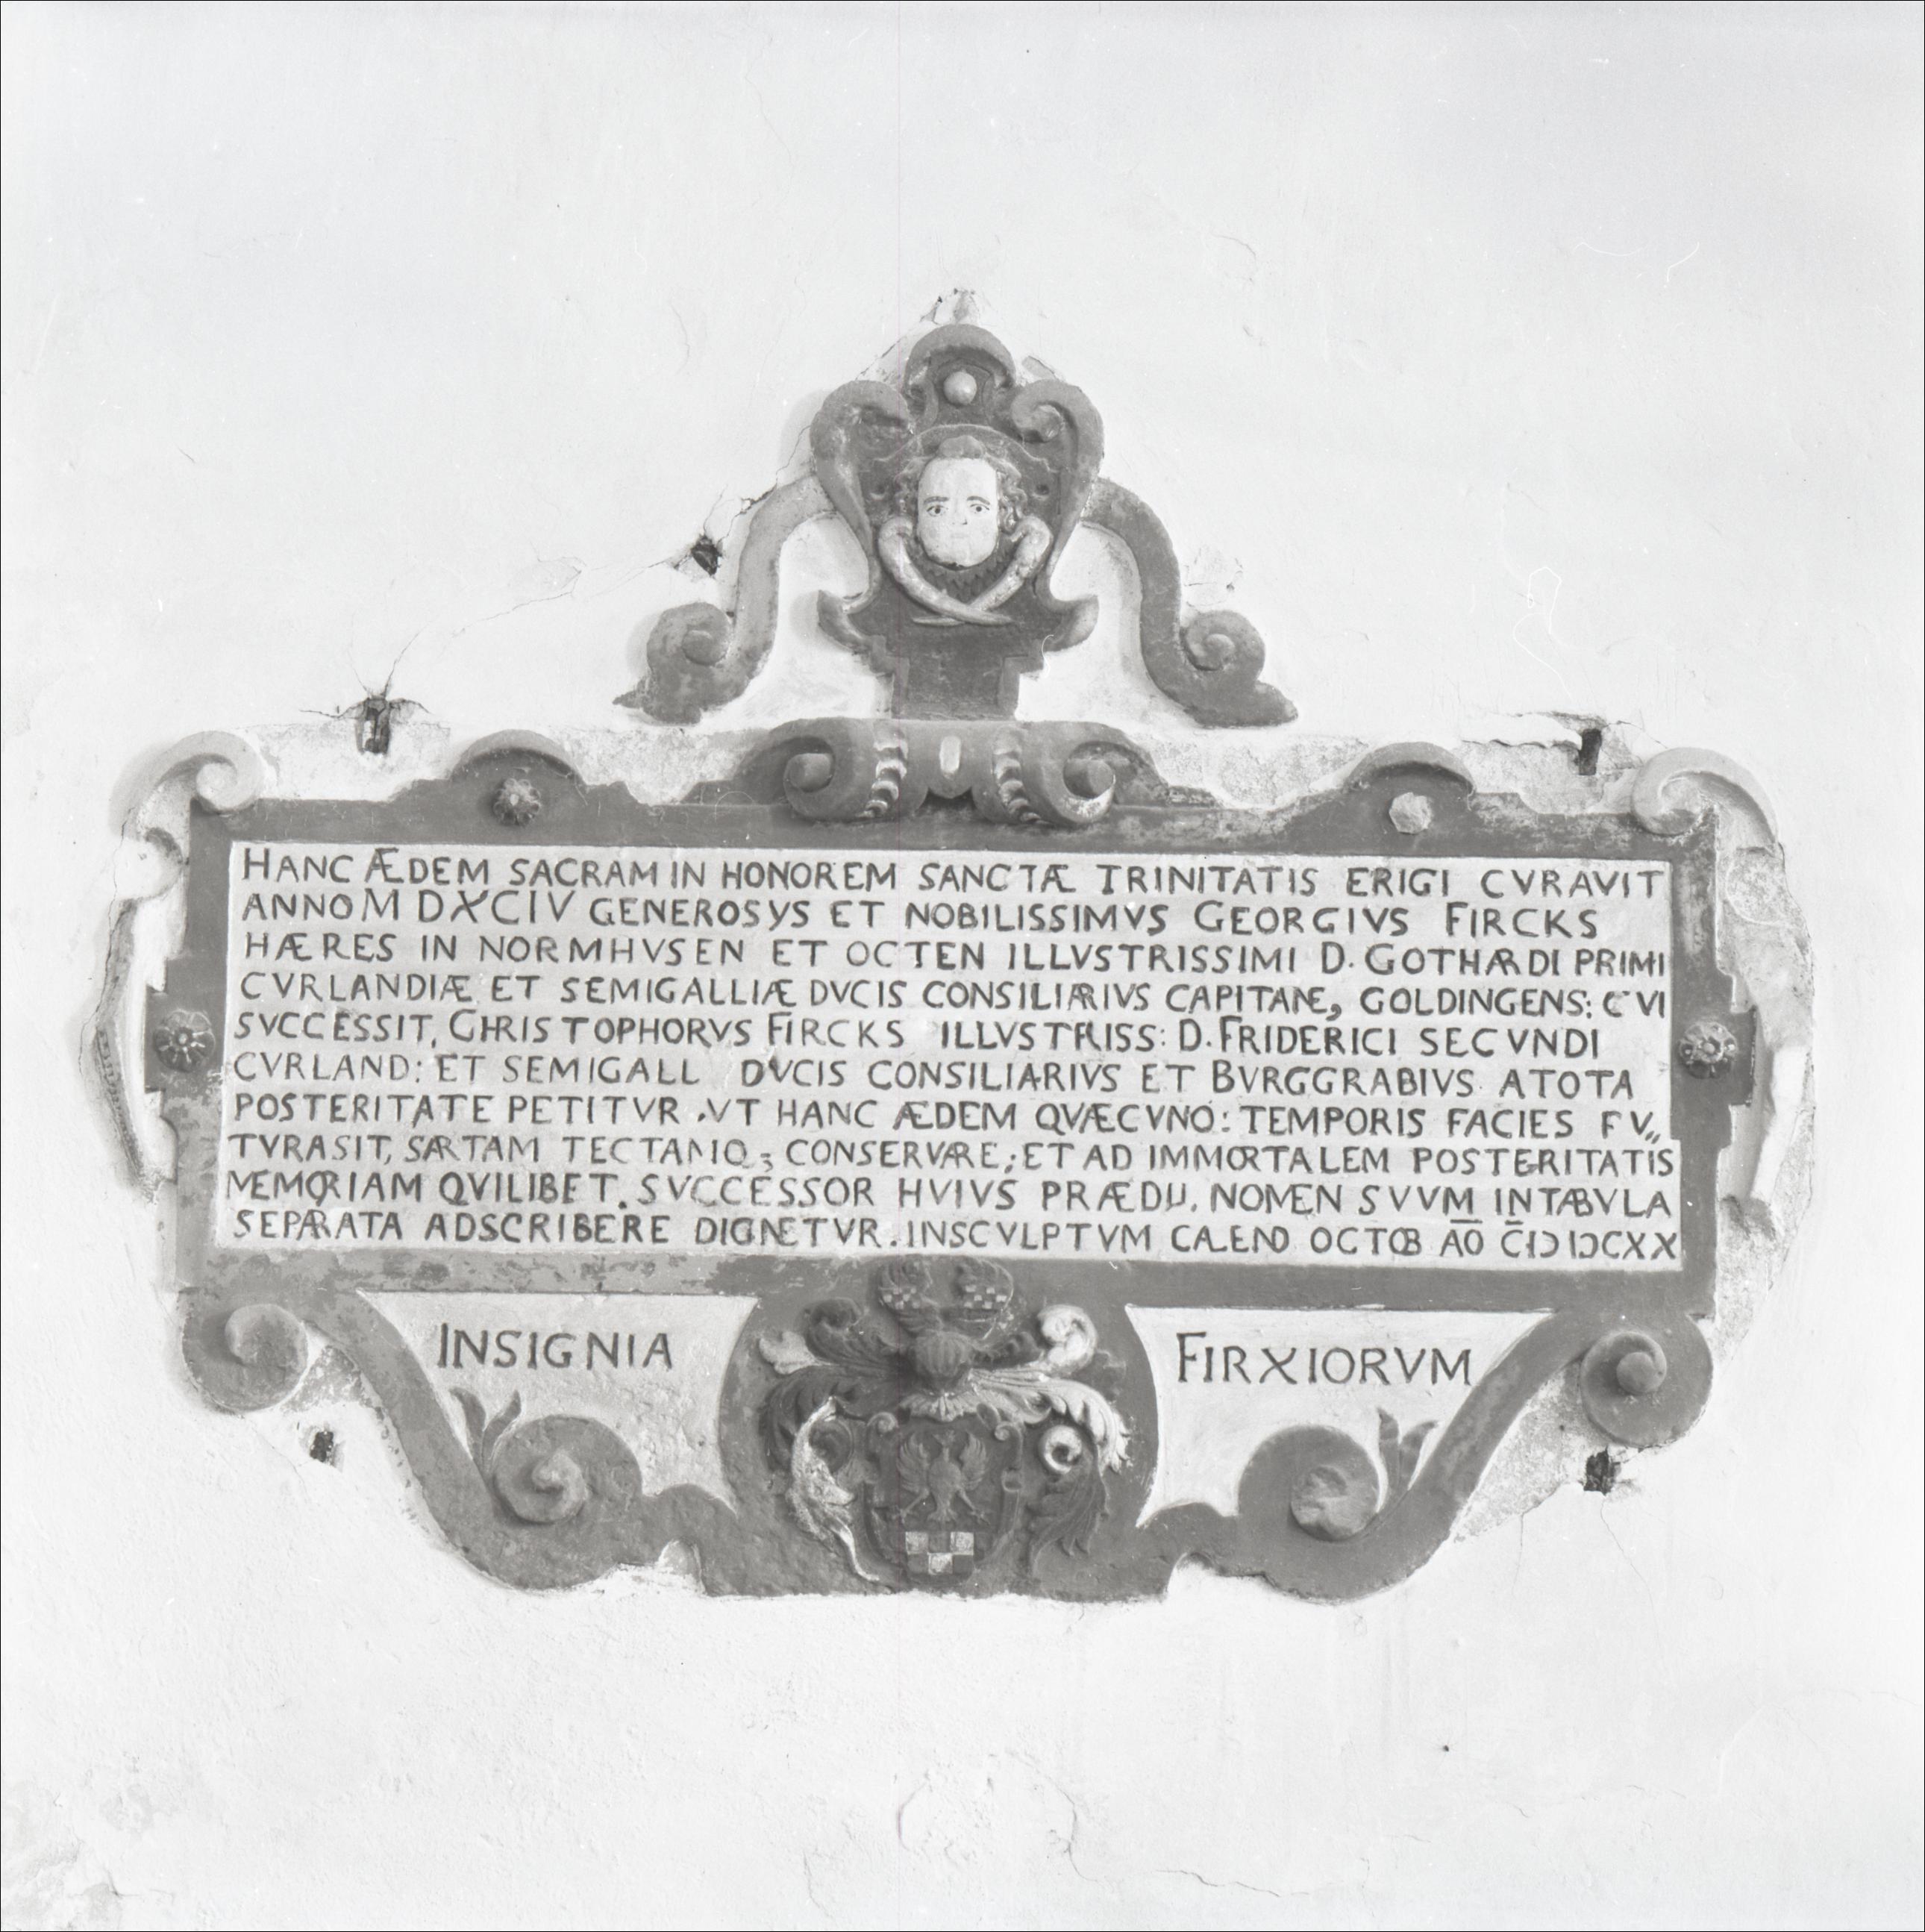 HANC ÆDEM SACRAM IN HONOREM SANCTÆ TRINITATIS ERIGI CVRAVIT
ANNO MDXCIV GENEROSYS ET NOBILISSIMVS GEORGIVS FIRCKS
HÆRES IN NORMHVSEN ET OCTEN ILLVSTRISSIMI D. GOTHARDI PRIMI
CVRLANDIÆ ET SEMIGALLIÆ DVCIS CONSILIARIVS CAPITANE, GOLDINGENS: CVI
SVCCESSIT, CHRISTOPHORVS FIRCKS ILLVSTRISS: D. FRIDERICI SECVNDI
CVRLAND: ET SEMIGALL DVCIS CONSILIARIVS ET BVRGGRABIVS ATOTA
POSTERITATE PETITVR .VT HANC ÆDEM QVÆCVNQ: TEMPORIS FACIES FV„
TVRASIT, SARTAM TECTAMQ; CONSERVARE; ET AD IMMORTALEM POSTERITATIS
MEMORIAM QVILIBET. SVCCESSOR HVIVS PRÆDII. NOMEN SVVM IN TABVLA
SEPARATA ADSCRIBERE DIGNETVR. INSCVLPTVM CALEND OCTOB A͞O C͞IↃ IↃCXX
INSIGNIA FIRXIORVM